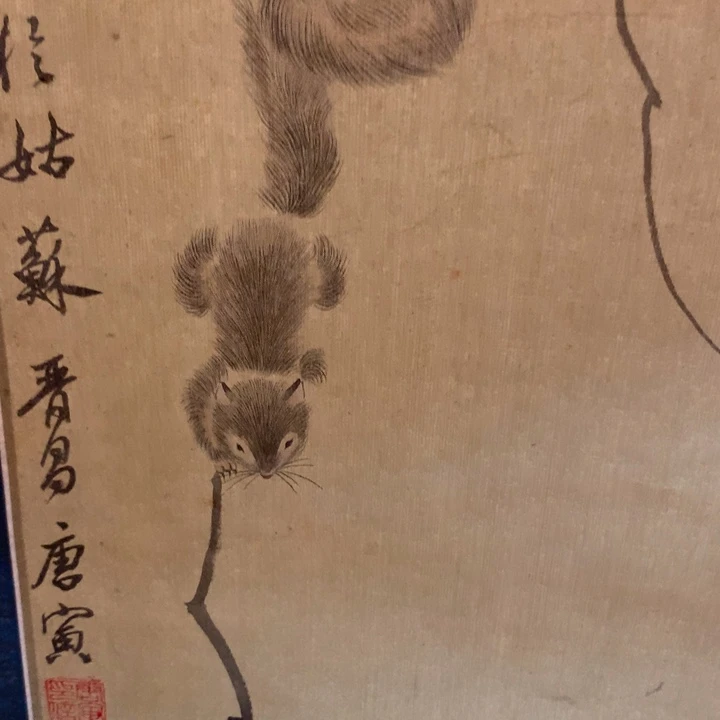 於姑蘇晉昌唐寅